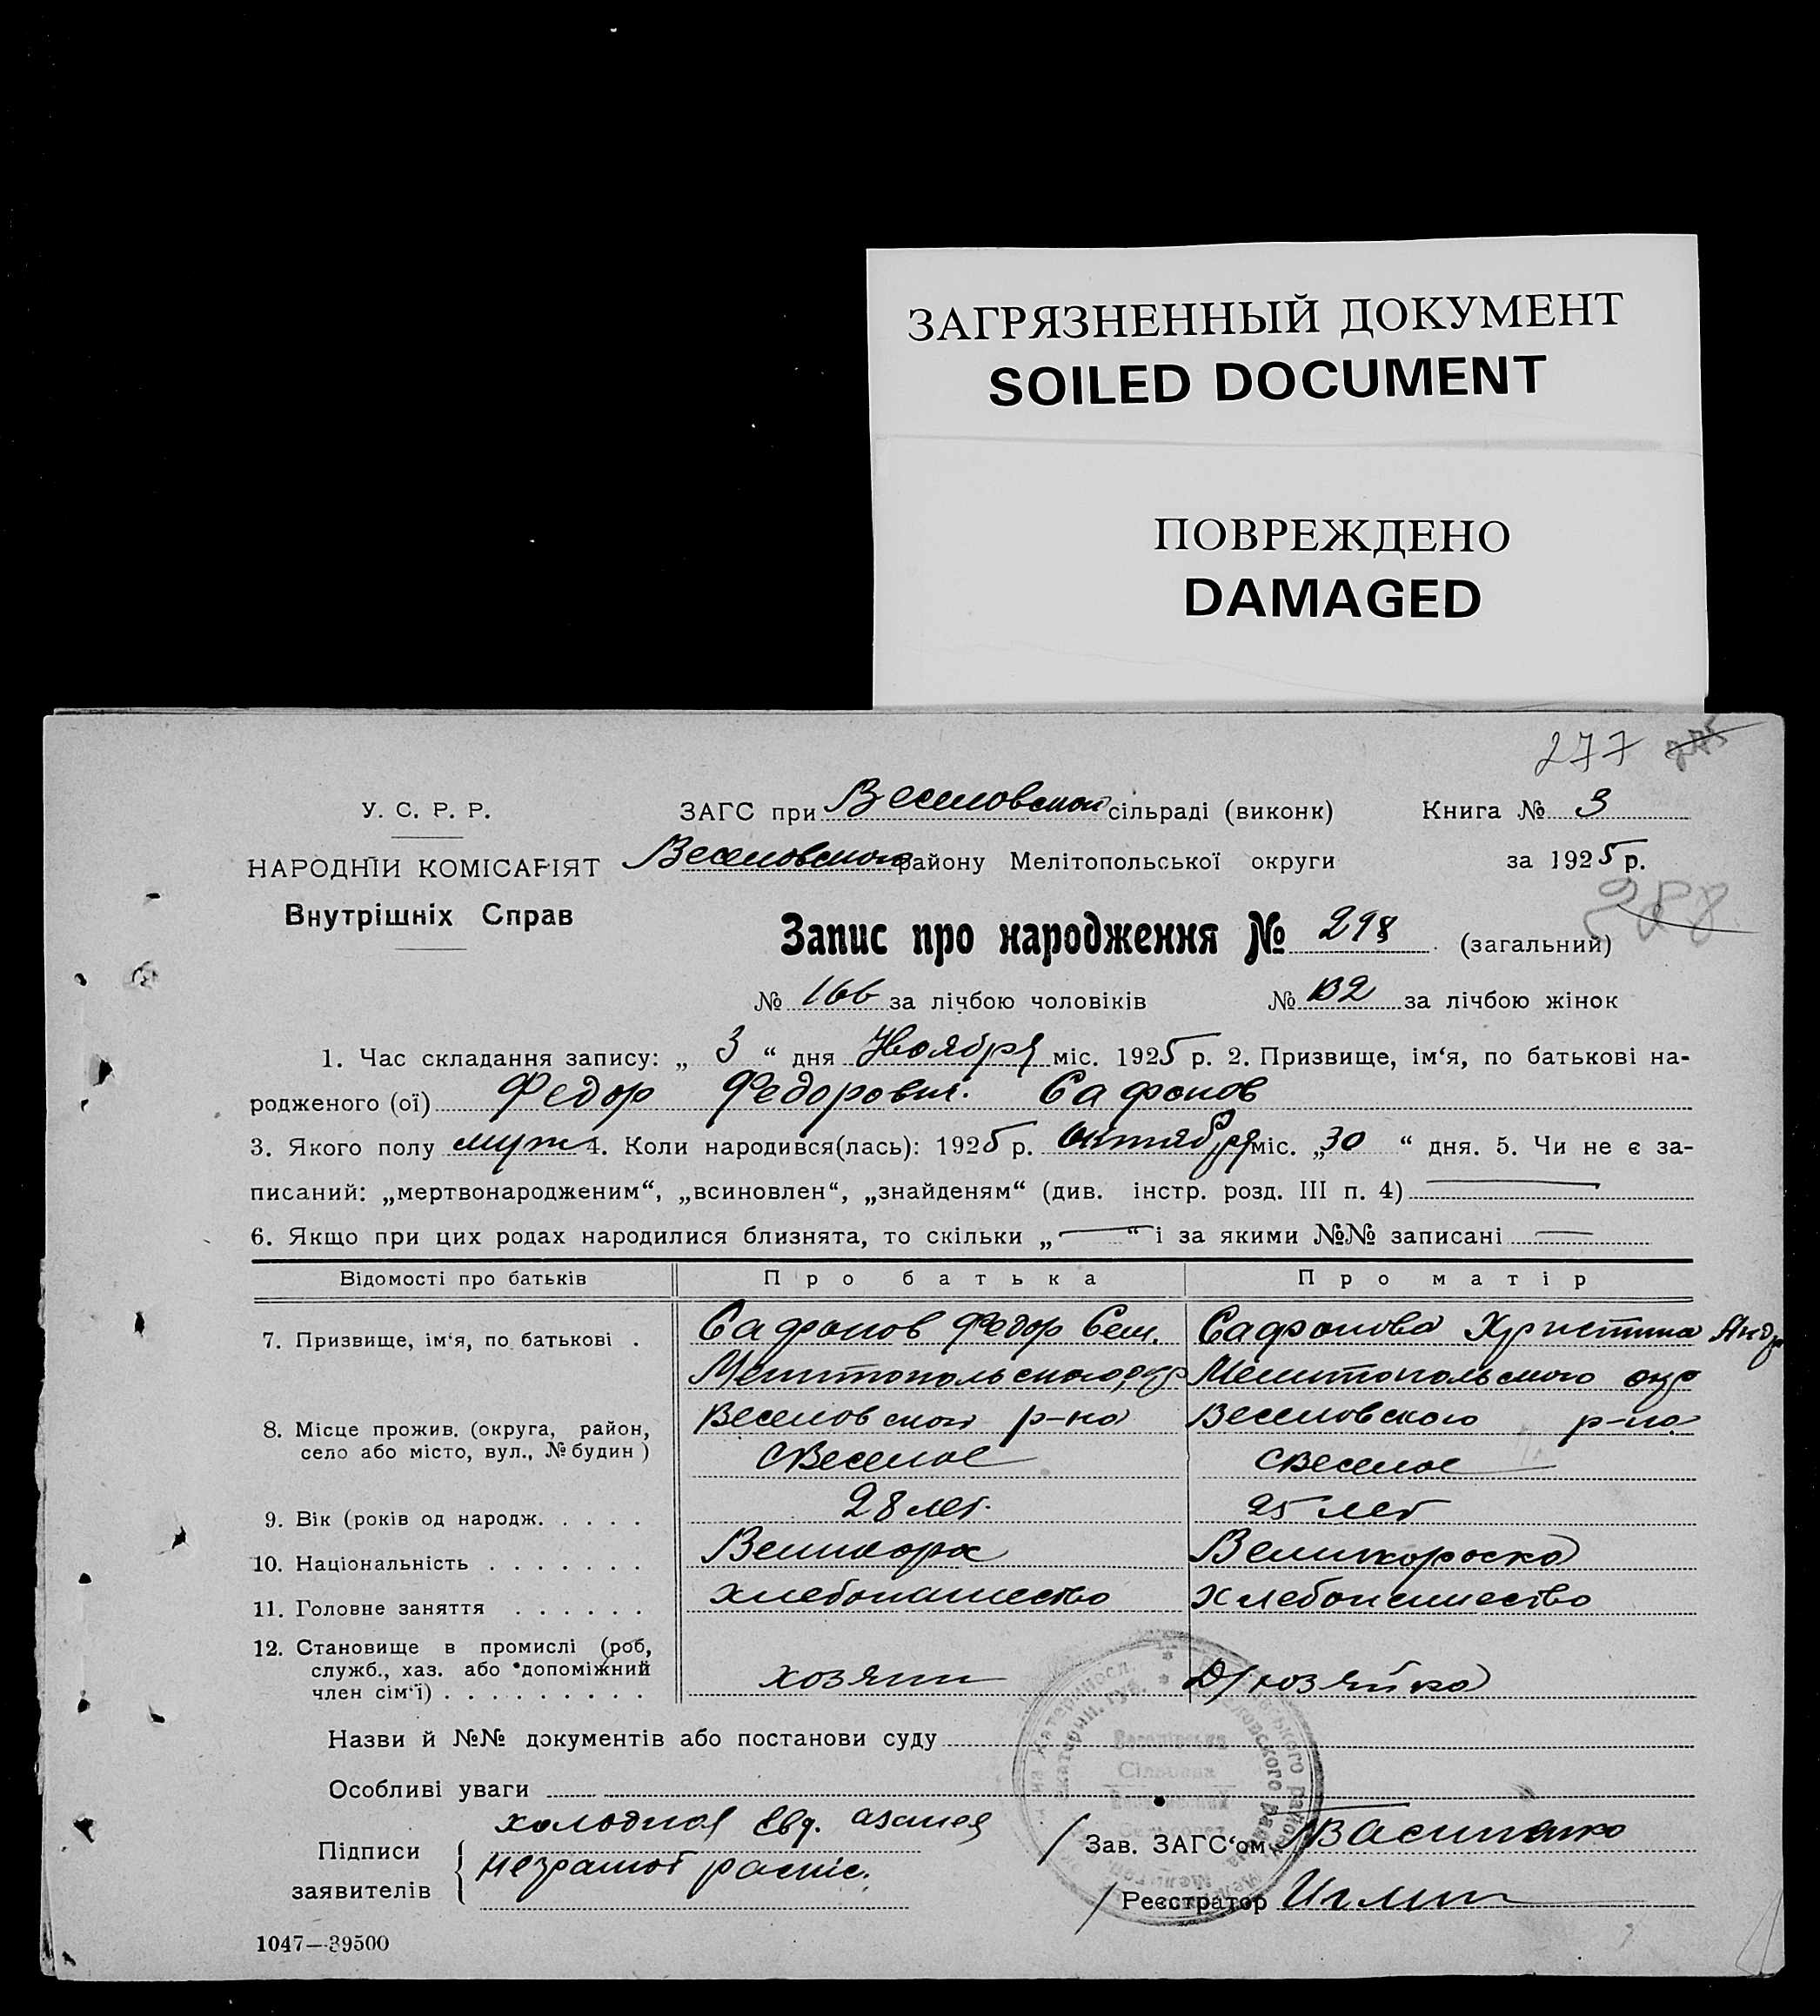 ЗАГРЯЗНЕННЫЙ ДОКУМЕНТ
SOILED DOCUMENT
ПОВРЕЖДЕНО
DAMAGED
277
У. С. Р. Р.
ЗАГС при Веселовском сільраді (виконк) Книга № 3
НАРОДНІЙ КОМІСАРІЯТ Веселовского району Мелітопольської округи за 1925 р.
288
Внутрішніх Справ
Запис про народження № 298 (загальний)
№ 166 за лічбою чоловіків № 132 за лічбою жінок
1. Час складання запису: „ 3 “ дня Ноября міс. 1925 р. 2. Призвище, ім‘я, по батькові на-
родженого (ої) Федор Федорович. Сафонов
3. Якого полу муж 4. Коли народився(лась): 1925 р. Октября міс. „30 “ дня. 5. Чи не є за-
писаний: „мертвонародженим“, „всиновлен“, „знайденям“ (див. інстр. розд. III п. 4)
6. Якщо при цих родах народилися близнята, то скільки „ “ і за якими №№ записані
Відомості про батьків Про батька Про матір
7. Призвище, ім‘я, по батькові . Сафонов Федор Сем. Сафонова Христина Андр
Мелитопольского окр Мелитопольского окр
Веселовского р-на Веселовского р-на
8. Місце прожив. (округа, район,
село або місто, вул., № будин ) с Веселое с Веселое
9. Вік (років од народж. . . . . 28 лет. 25 лет
10. Національність . . . . . . . Великорос Великороска
11. Головне заняття . . . . . . хлебопашество хлебопашество
12. Становище в промислі (роб,
служб., хаз. або допоміжний
член сім‘ї) . . . . . . . . . хозяин Д/хозяйка
Назви й №№ документів або постанови суду
Особливі уваги
Підписи
заявителів
холодная Евд.
неграмот распис.
Зав. ЗАГС‘ом Василенко
Реєстратор
1047—39500